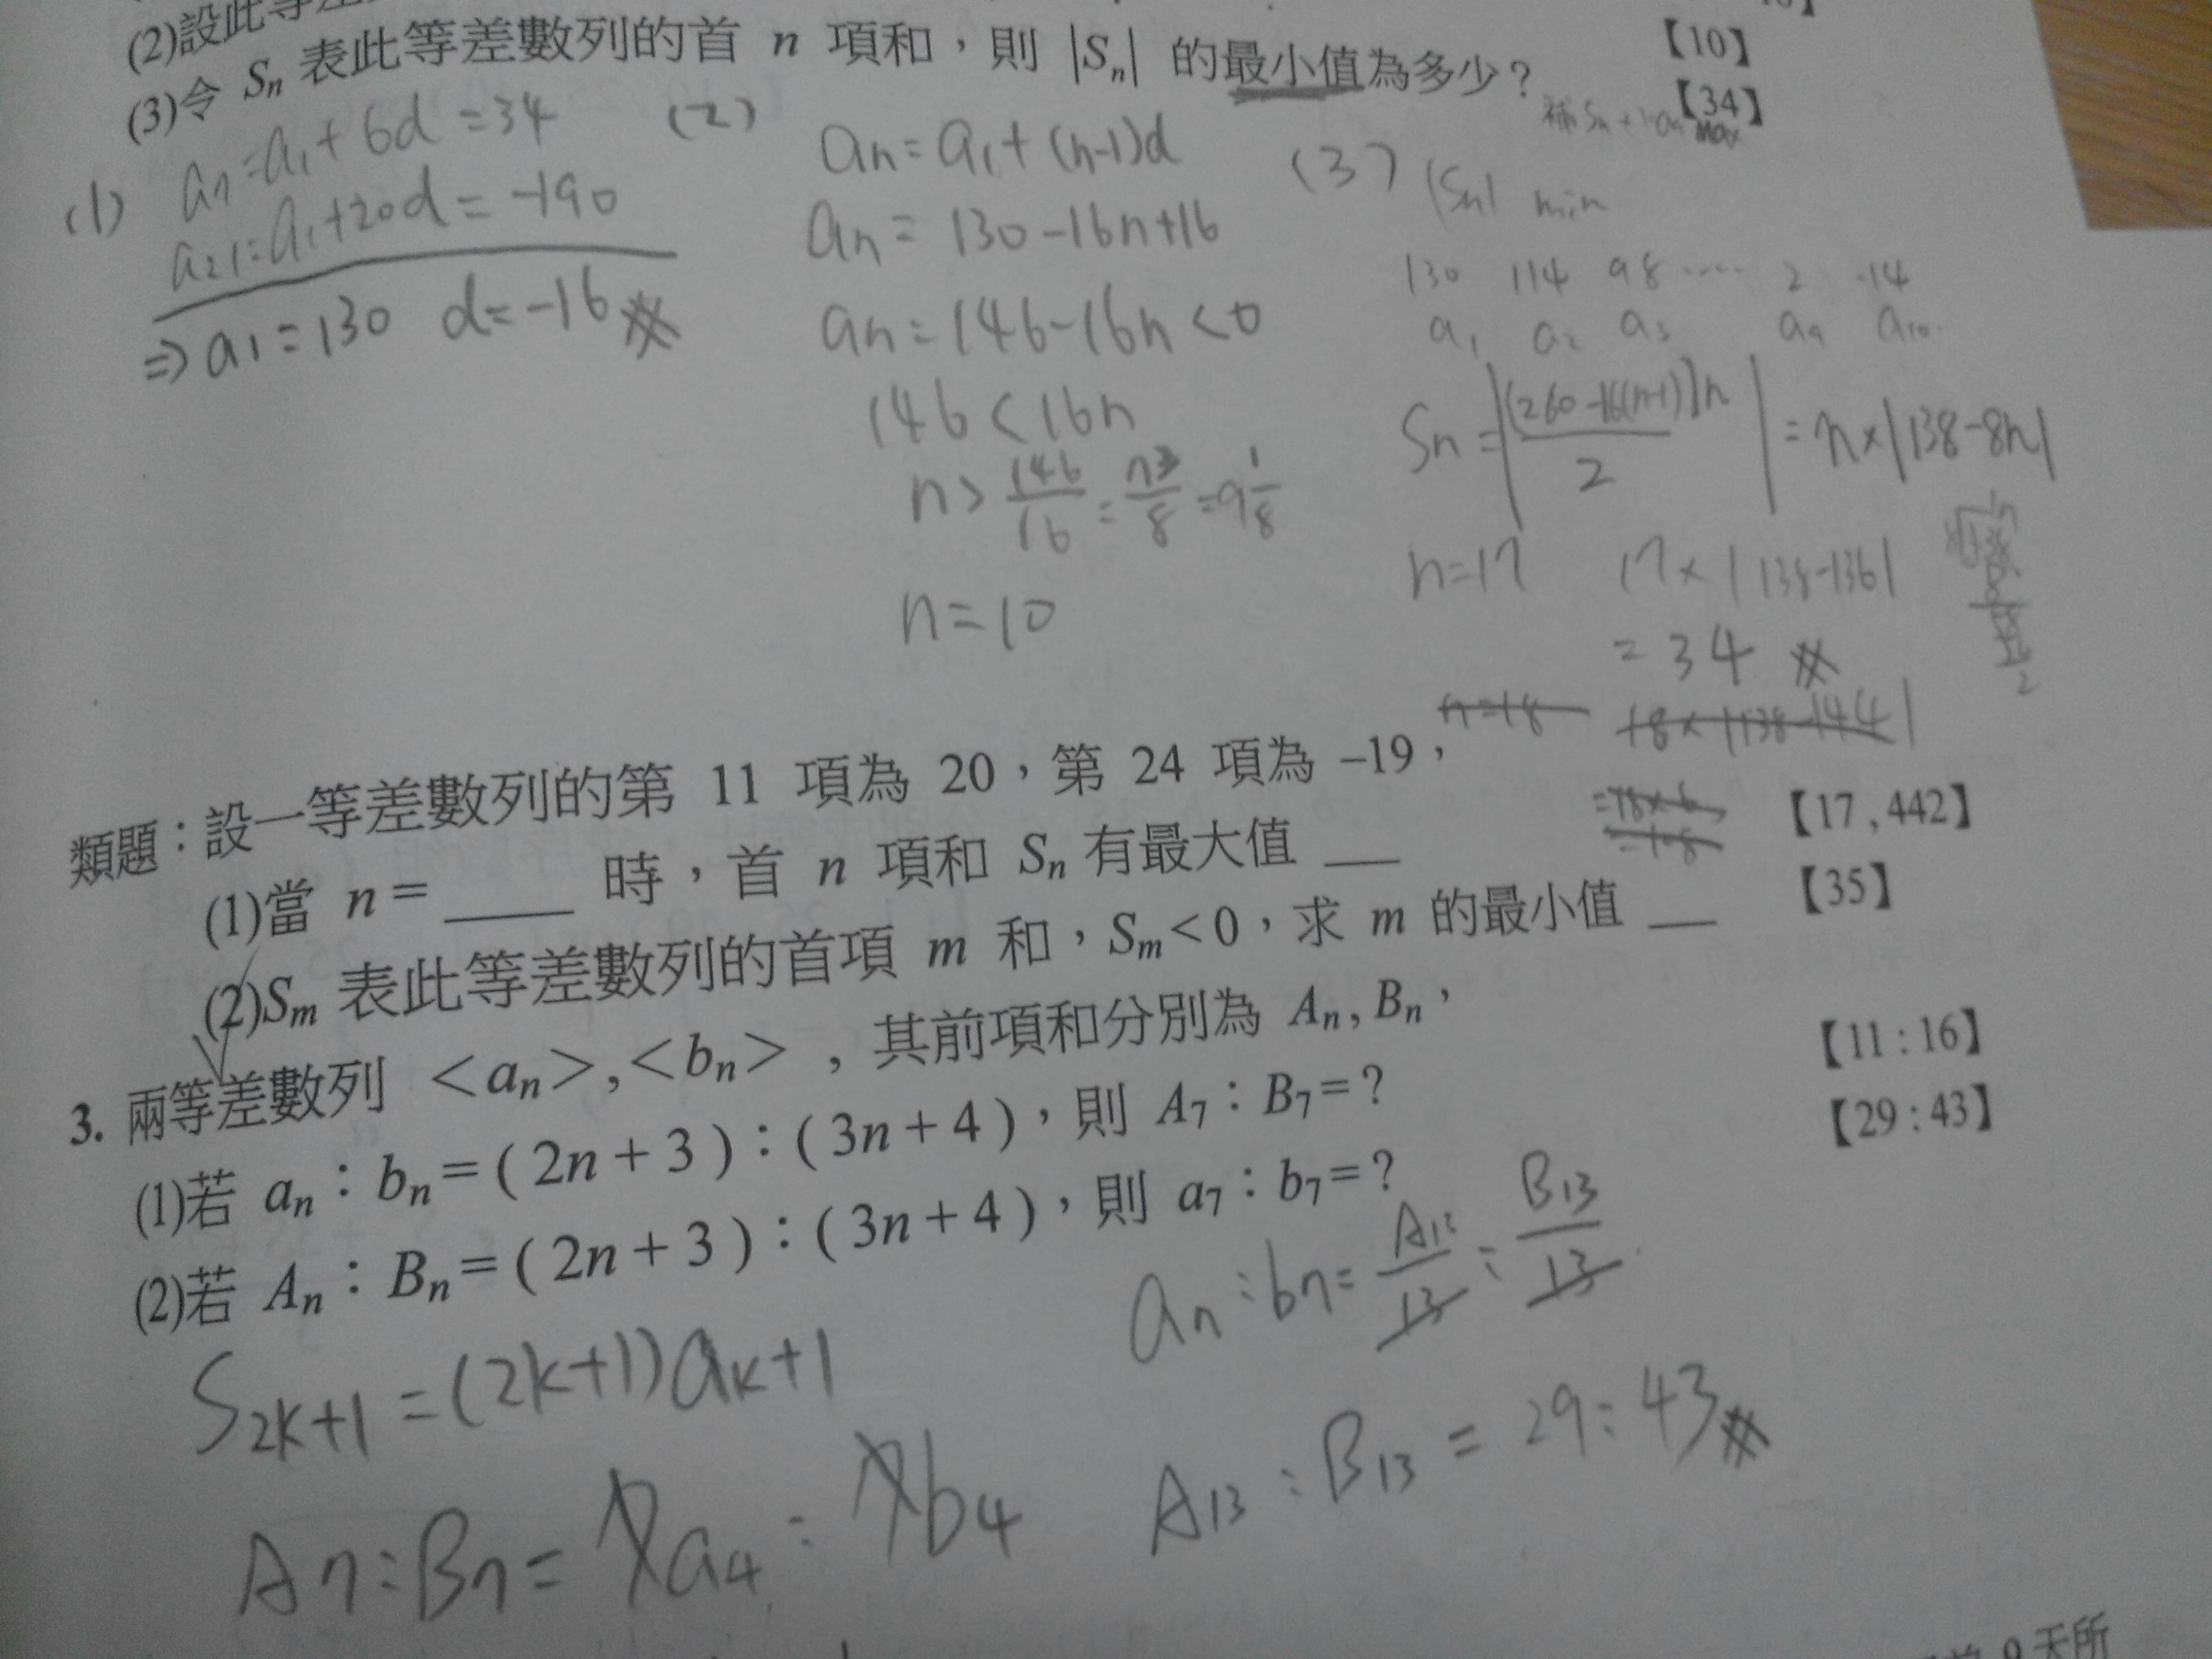 (2)設此等差
(3)令 Sn 表此等差數列的首 n 項和，則 |Sn| 的最小值為多少？
【10】
【34】
max
(1) a7=a1+6d=34
a21=a1+20d=-190
⇒ a1=130 d=-16
(2) an=a1+(n-1)d
an=130-16n+16
an=146-16n<0
146<16n
n>146/16=73/8=9 1/8
n=10
(3) |Sn| min
130 114 98 ‥‥ 2 -14
a1 a2 a3 a9 a10
Sn=|[260-16(n-1)]n/2|=n×|138-8n|
n=17 17×|138-136|
=34
n=18 18×|138-144|
=18×6
=108
類題：設一等差數列的第 11 項為 20，第 24 項為 –19，
(1)當 n= ____ 時，首 n 項和 Sn 有最大值 __ 【17 , 442】
(2)Sm 表此等差數列的首項 m 和，Sm<0，求 m 的最小值 __ 【35】
3. 兩等差數列 <an>,<bn> , 其前項和分別為 An, Bn，
(1)若 an：bn=( 2n+3 )：( 3n+4 )，則 A7：B7=？ 【11 : 16】
(2)若 An：Bn=( 2n+3 )：( 3n+4 )，則 a7：b7=？ 【29 : 43】
a7:b7=A13/13:B13/13
S2k+1=(2k+1)ak+1
A13:B13=29:43
A7:B7=7a4:7b4
9 天所